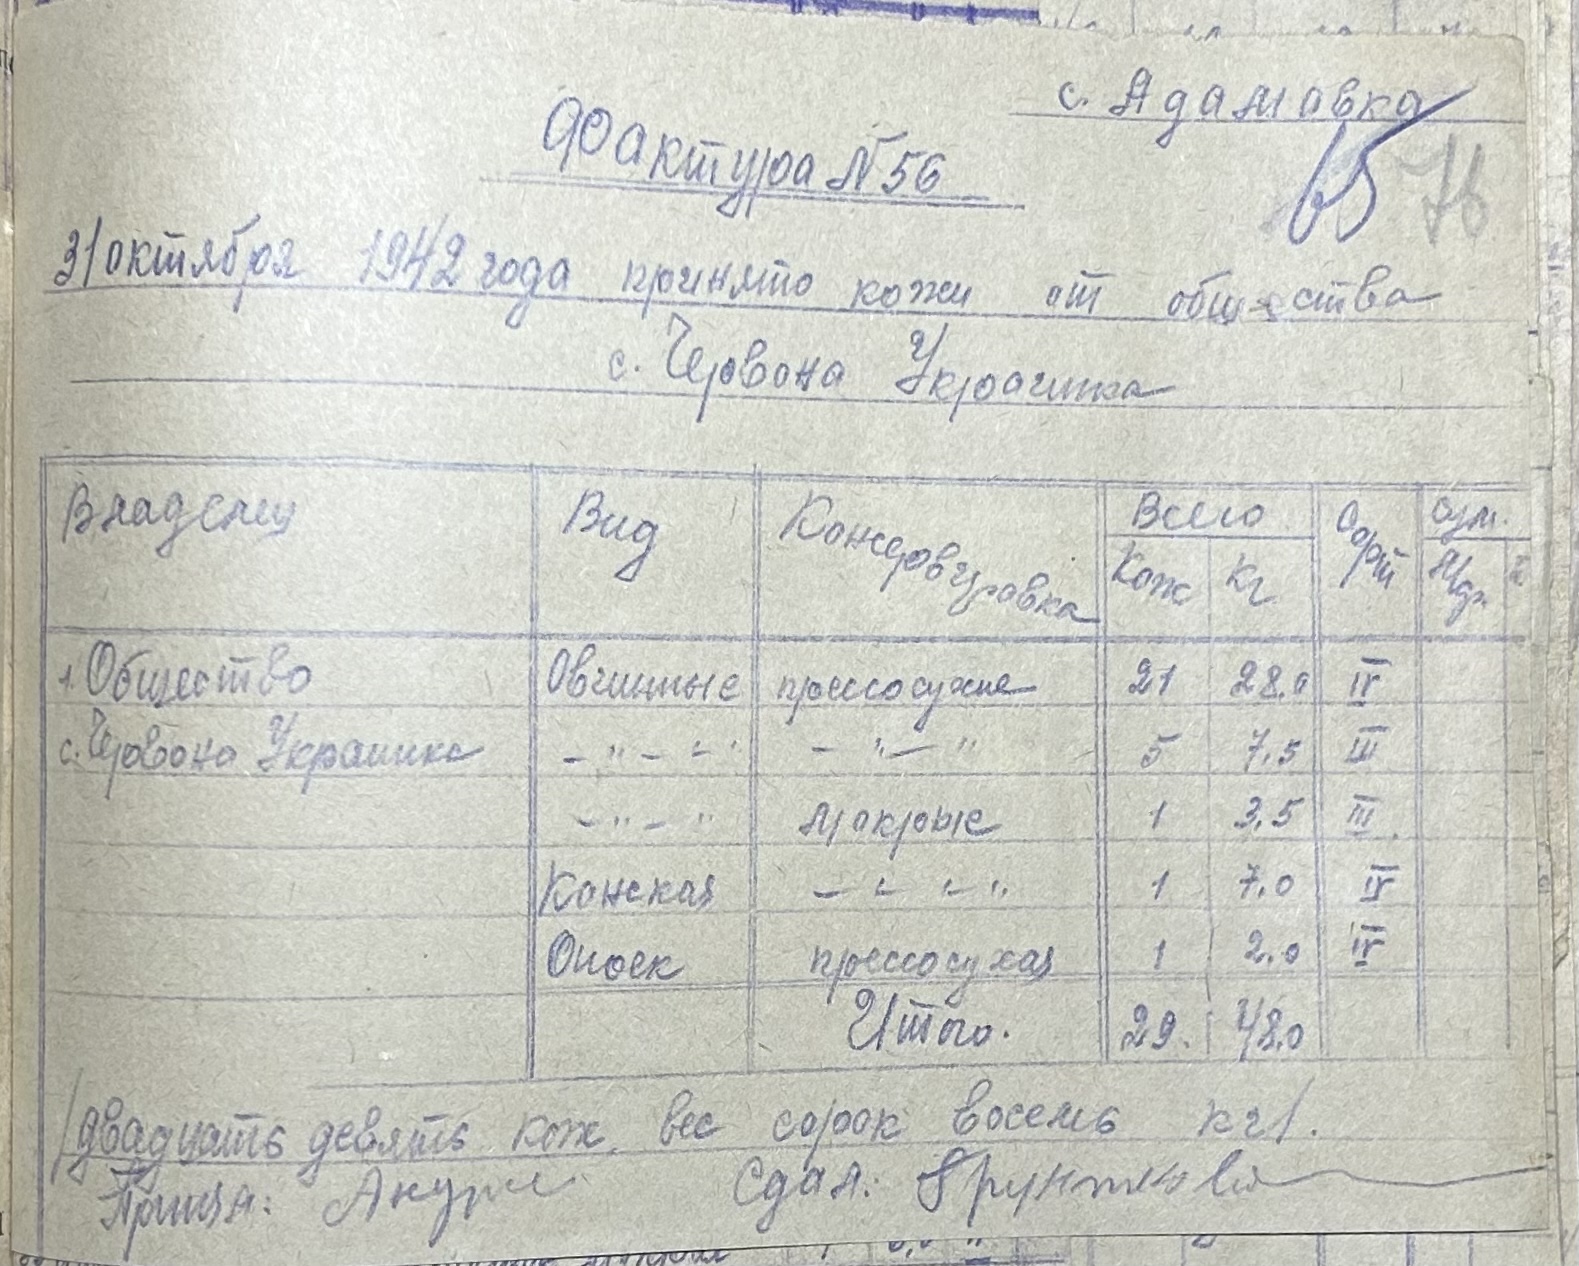 с. Адамовка
Фактура N 56
65 76
31 октября 1942 года принято кожи от общества
с. Червона Украинка
Владелец Вид Консервировка Всего Сорт сум.
Кож Кг
1. Общество Овчинные прессосухие 21 28.0 IV
с. Червона Украинка – " – " – " – " 5 7.5 III
– " – " мокрые 1 3.5 III
Конская – " – " 1 7.0 IV
Опоек прессосухая 1 2.0 IV
Итого. 29. 48.0
/двадцать девять кож. вес сорок восемь кг/.
Принял: Сдал: